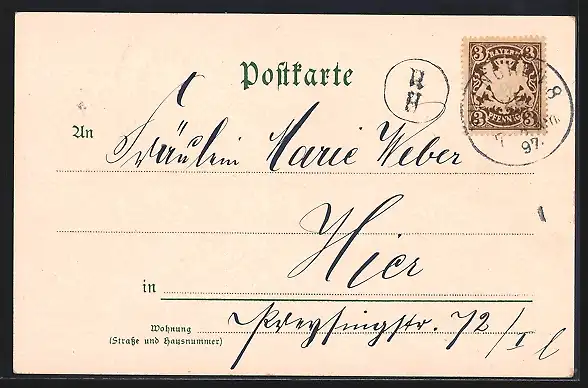 Postkarte
R
H
3 BAYERN 3
3 PFENNIG 3
MÜNCHEN 8
97.
An Fräulein Marie Weber
Hier
in
Wohnung
(Straße und Hausnummer)
Preysingstr. 72/I l